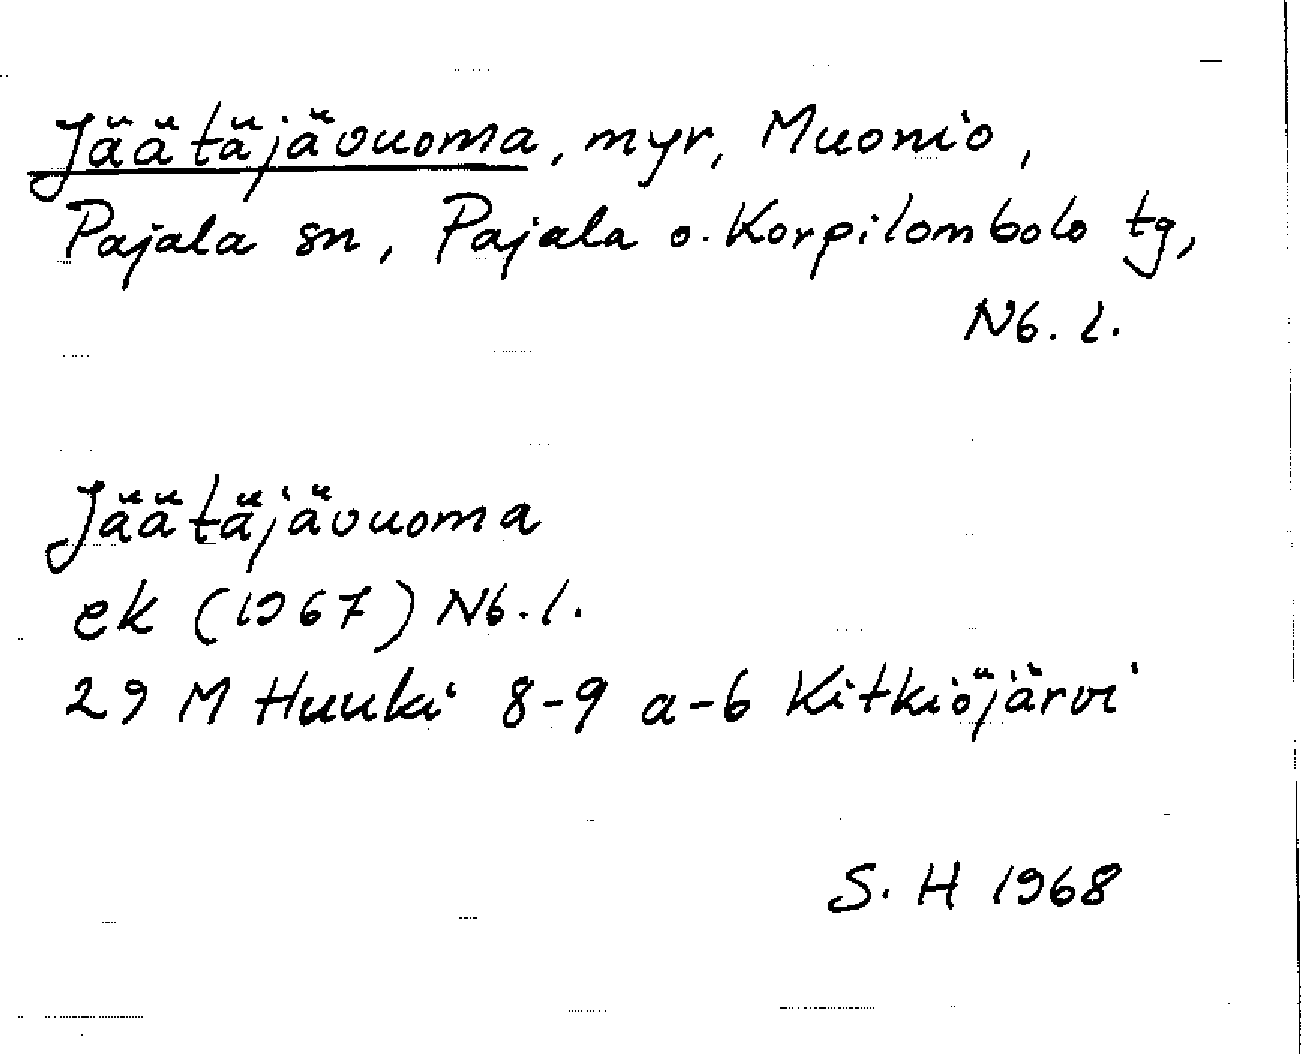 Jäätäjävuoma, myr, Muonio,
Pajala sn, Pajala o. Korpilombolo tg,
Nb. l.
Jäätäjävuoma
ek (1967) Nb. l.
29 M Huuki 8-9 a-b Kitkiöjärvi
S. H 1968